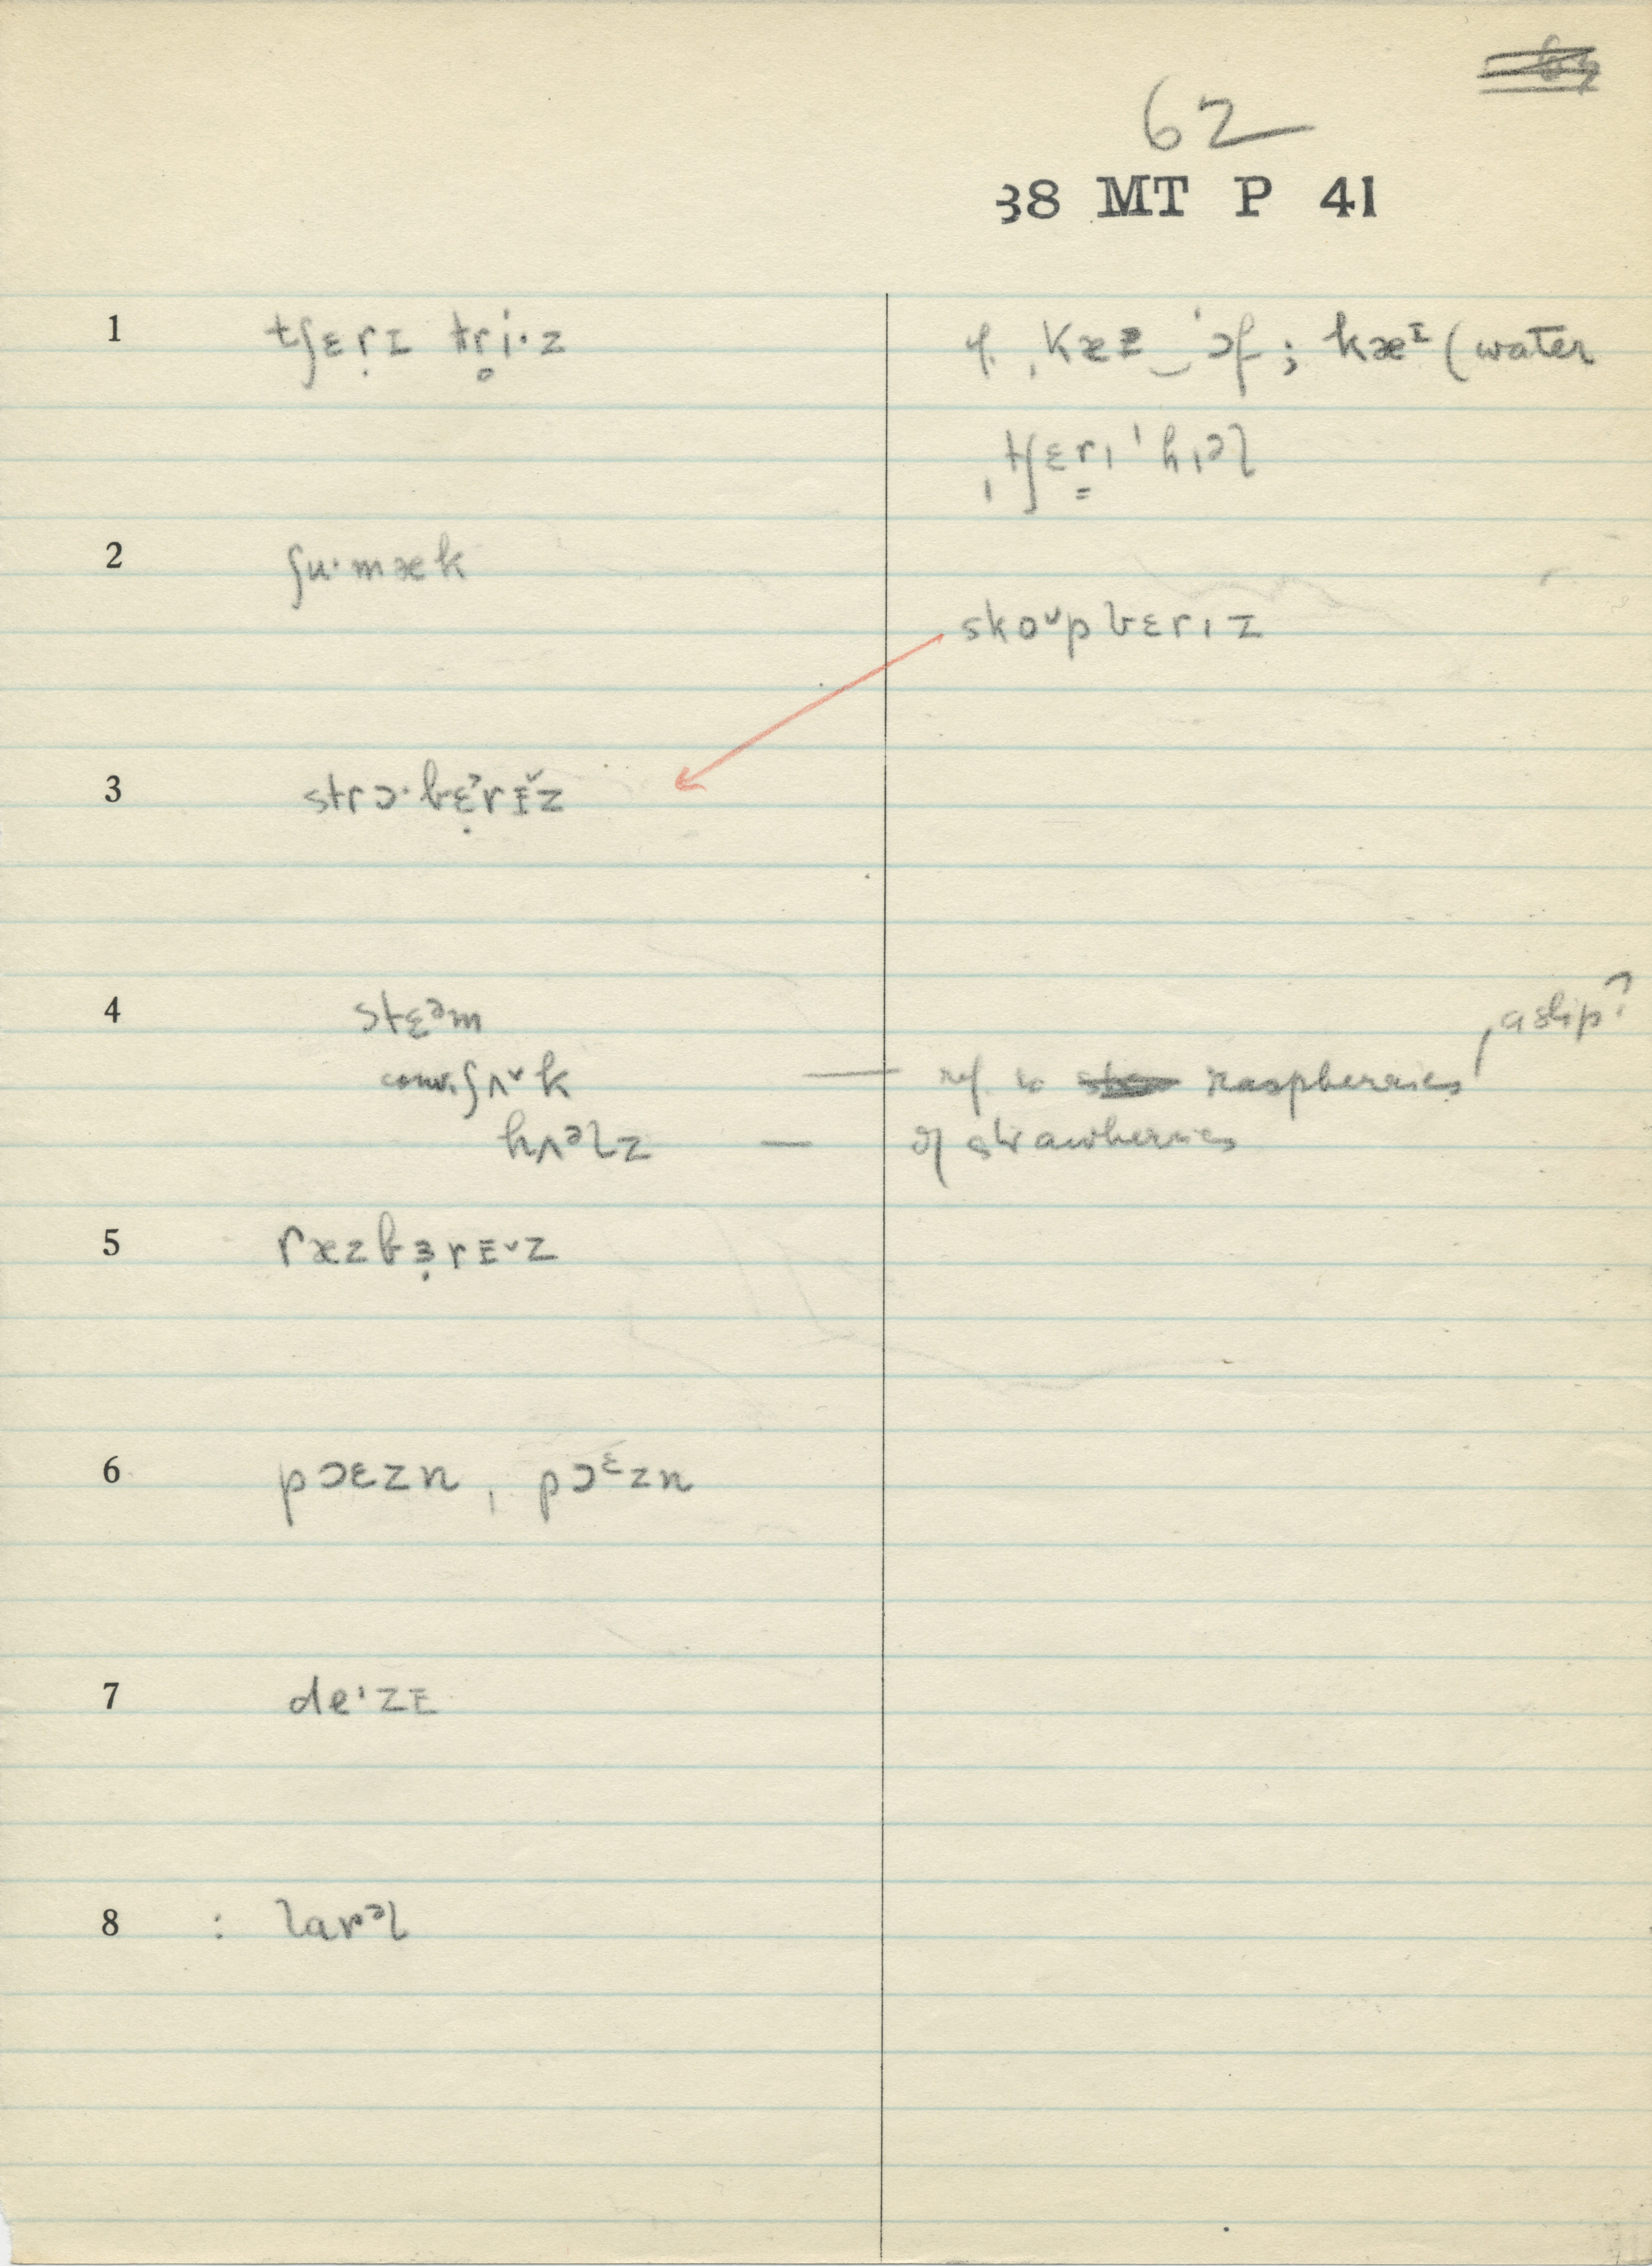 62
38 MT P 41
1 tʃɛṛɪ tr̥i·z
cf. ˌkæz‿ˈɔf ; kæᴵ (water
ˌtʃɛr̳ɪˈhɪəl
2 ʃu·mæk
skoᵛpbɛrɪz
3 strɔ·bɛ̣˒rɪ˅z
4 stɛᵊm
a slip?
conv. ʃʌ˅k — ref. to raspberries,
hʌᵊlz — of strawberries
5 ræzbɜ̣rɪ˅z
6 pɔɛzn , pɔᵋzn
7 de·zɪ
8 : larᵊl